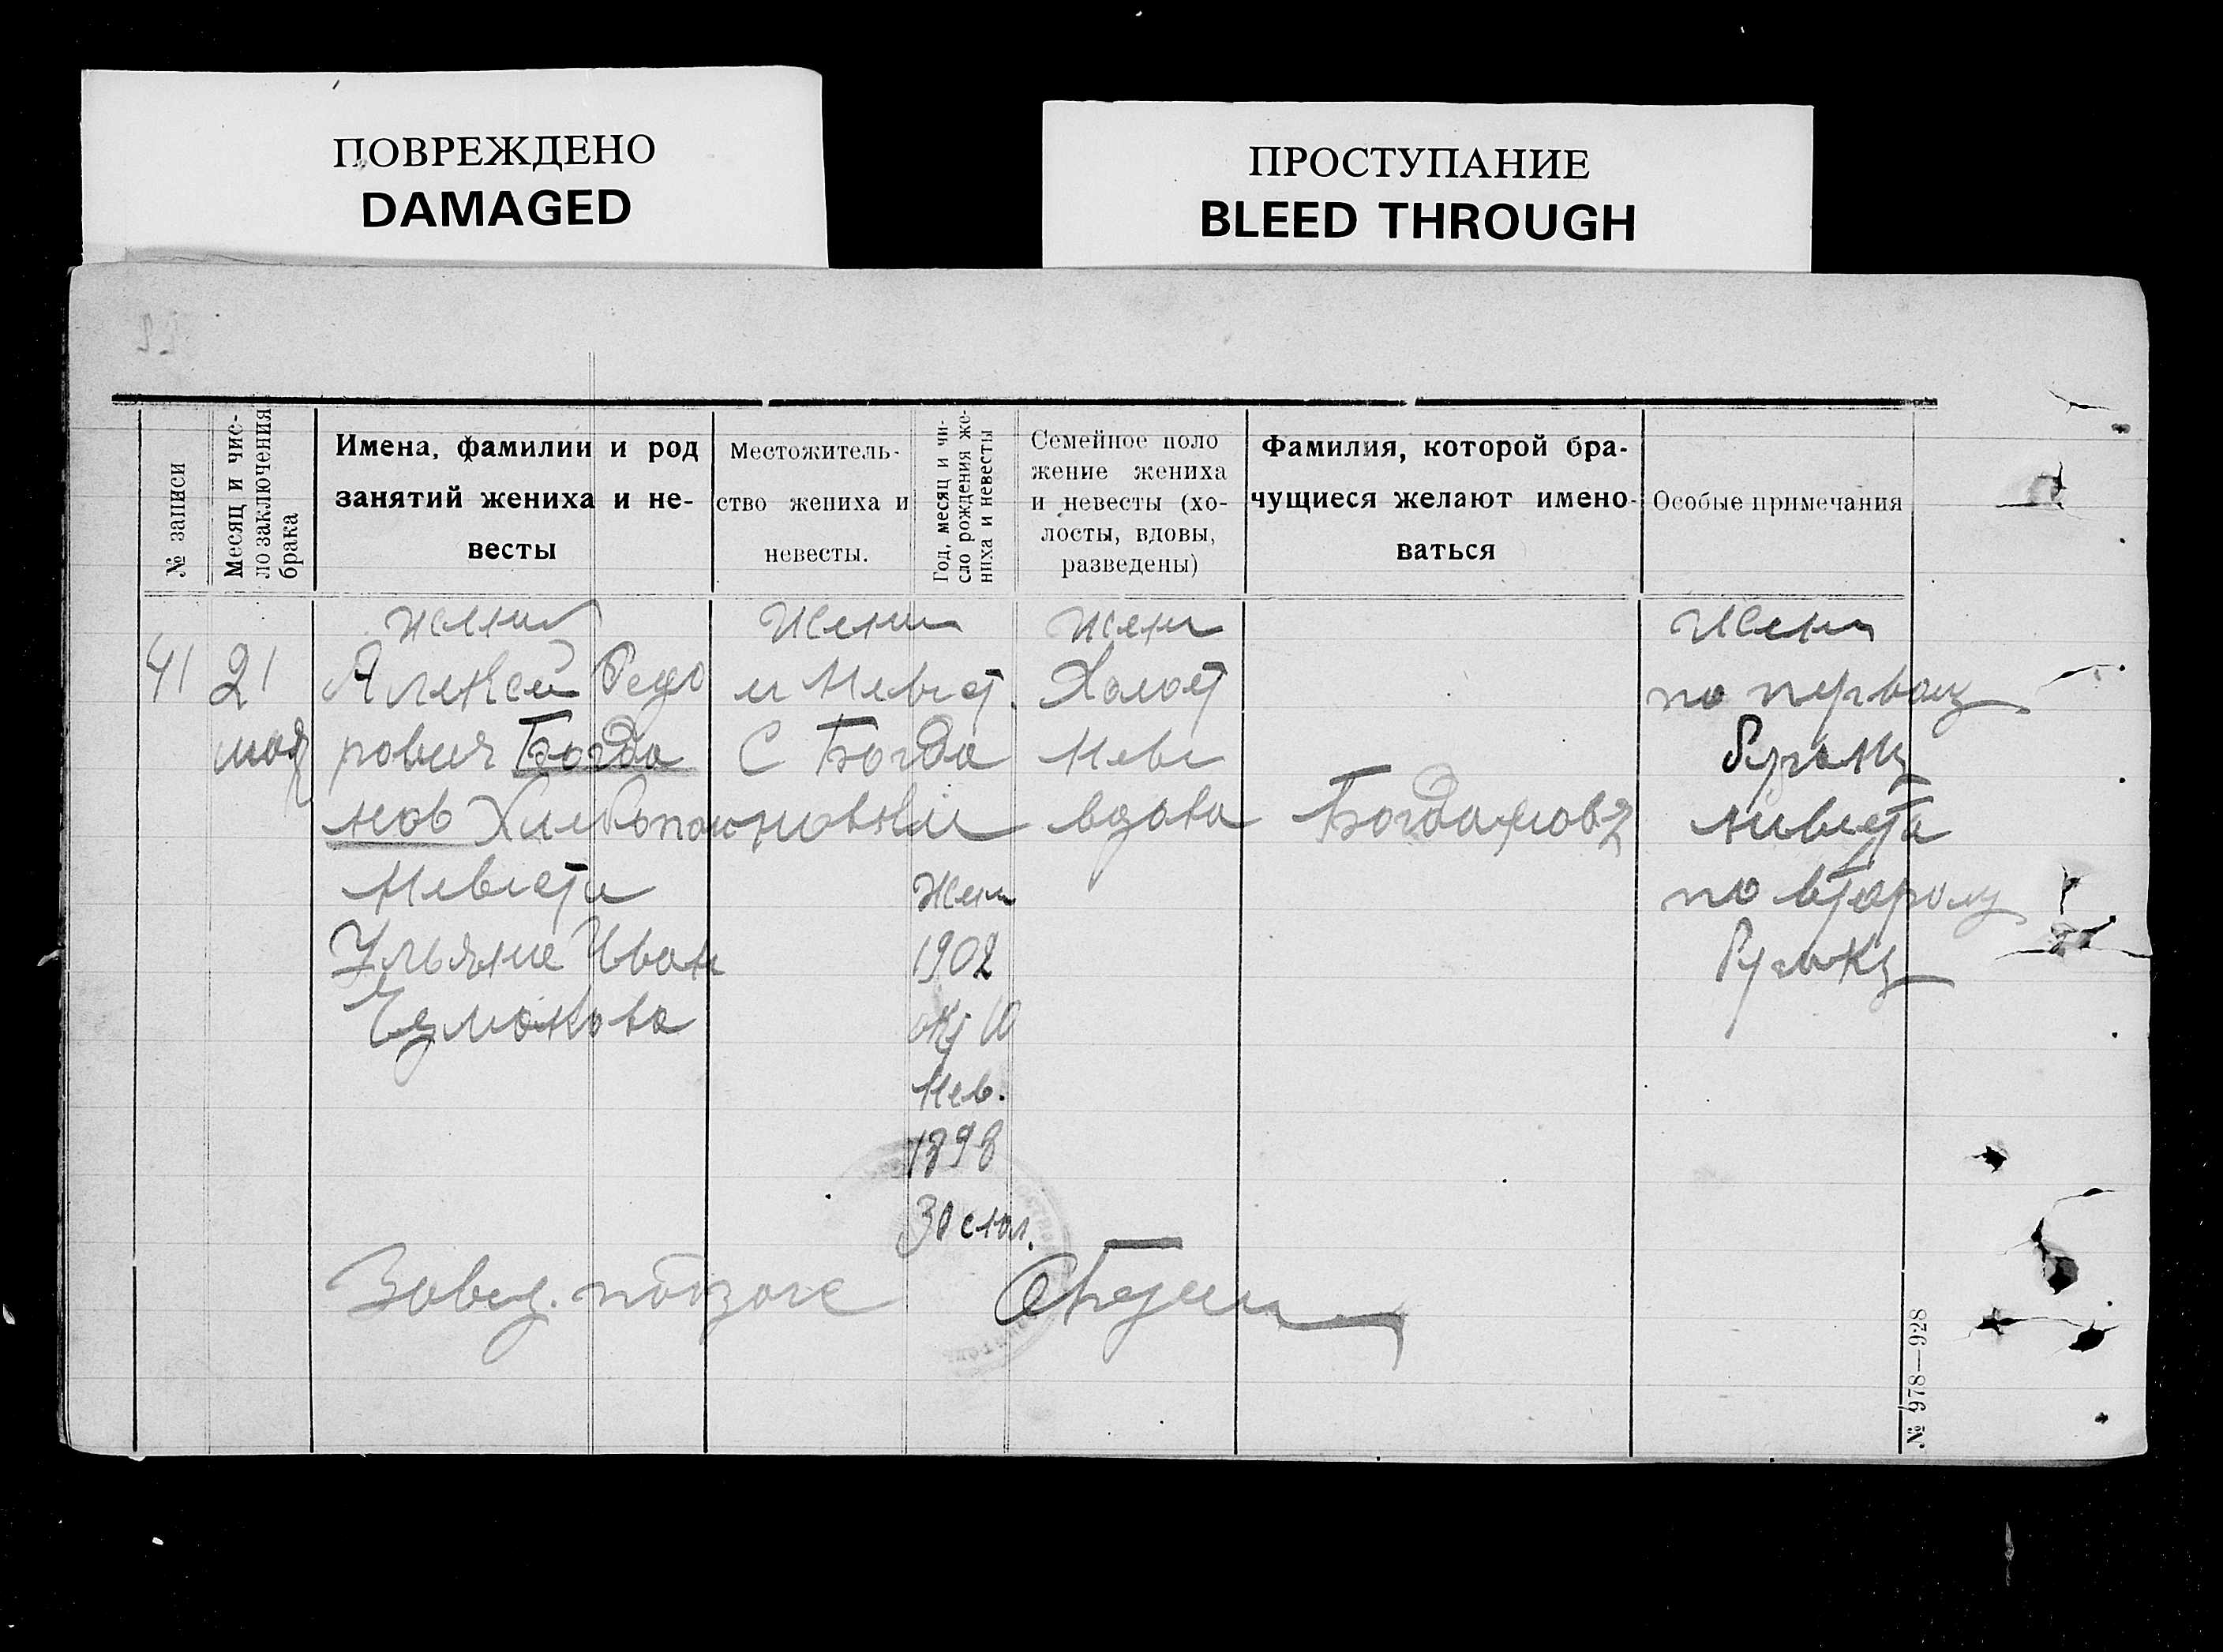 ПОВРЕЖДЕНО
DAMAGED
ПРОСТУПАНИЕ
BLEED THROUGH
№ записи
Месяц и чис-
ло заключения
брака
Имена, фамилии и род
занятий жениха и не-
весты
Местожитель-
ство жениха и
невесты.
Год, месяц и чи-
сло рождения же-
ниха и невесты
Семейное поло
жение жениха
и невесты (хо-
лосты, вдовы,
разведены)
Фамилия, которой бра-
чущиеся желают имено-
ваться
Особые примечания
41
21
мая
Жених
Алексей Федо
рович Богда
нов Хлебопаш
Невеста
Ульяне Иван
Жених
и Невест.
С Богда
новки
Жен
1902
окт 10
Нев.
1898
Жених
Холост
Неве
вдова
Богданов
Жених
по первому
браку
невеста
по второму
браку
Завед. подзагс
№ 978—928